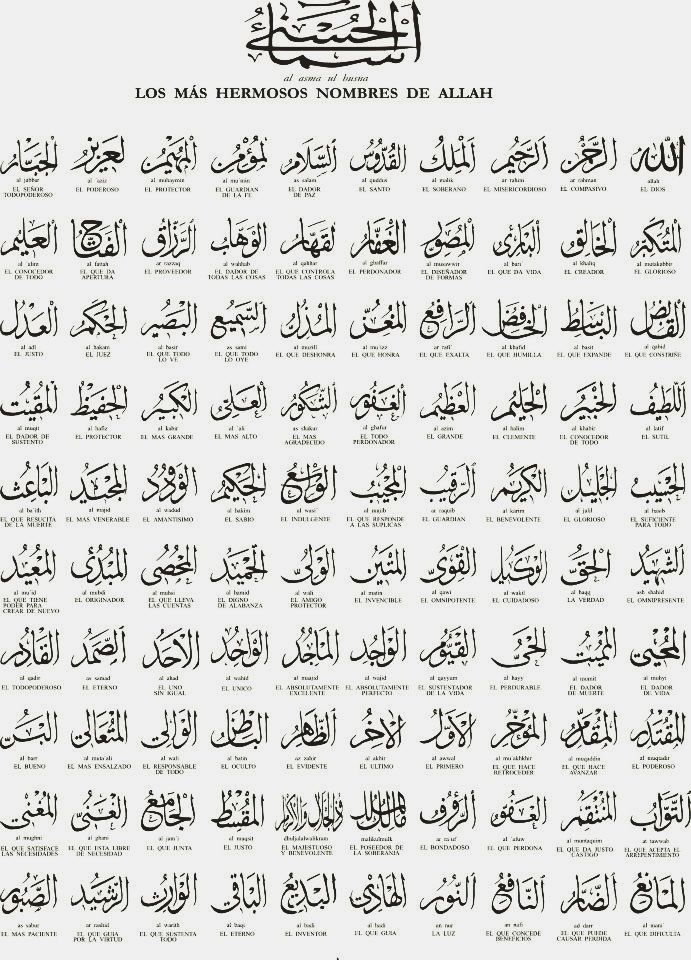 أسماء الحسنى
al asma ul husna
LOS MÁS HERMOSOS NOMBRES DE ALLAH
الله
allah
EL DIOS
الرحمن
ar rahman
EL COMPASIVO
الرحيم
ar rahim
EL MISERICORDIOSO
الملك
al malik
EL SOBERANO
القدوس
al quddus
EL SANTO
السلام
as salam
EL DADOR
DE PAZ
المؤمن
al mu min
EL GUARDIAN
DE LA FE
المهيمن
al muhaymin
EL PROTECTOR
العزيز
al 'aziz
EL PODEROSO
الجبار
al jabbar
EL SEÑOR
TODOPODEROSO
المتكبر
al mutakabbir
EL GLORIOSO
الخالق
al khaliq
EL CREADOR
البارئ
al bari'
EL QUE DA VIDA
المصور
al musawwir
EL DISEÑADOR
DE FORMAS
الغفار
al ghaffar
EL PERDONADOR
القهار
al qahhar
EL QUE CONTROLA
TODAS LAS COSAS
الوهاب
al wahhab
EL DADOR DE
TODAS LAS COSAS
الرزاق
ar razzaq
EL PROVEEDOR
الفتاح
al fattah
EL QUE DA
APERTURA
العليم
al 'alim
EL CONOCEDOR
DE TODO
القابض
al qabid
EL QUE CONSTRIÑE
الباسط
al basit
EL QUE EXPANDE
الخافض
al khafid
EL QUE HUMILLA
الرافع
ar rafi'
EL QUE EXALTA
المعز
al mu'izz
EL QUE HONRA
المذل
al muzill
EL QUE DESHONRA
السميع
as sami
EL QUE TODO
LO OYE
البصير
al basir
EL QUE TODO
LO VE
الحكم
al hakam
EL JUEZ
العدل
al adl
EL JUSTO
اللطيف
al latif
EL SUTIL
الخبير
al khabir
EL CONOCEDOR
DE TODO
الحليم
al halim
EL CLEMENTE
العظيم
al azim
EL GRANDE
الغفور
al ghafur
EL TODO
PERDONADOR
الشكور
as shakar
EL MAS
AGRADECIDO
العلي
al 'ali
EL MAS ALTO
الكبير
al kabir
EL MAS GRANDE
الحفيظ
al hafiz
EL PROTECTOR
المقيت
al muqit
EL DADOR DE
SUSTENTO
الحسيب
al hasib
EL SUFICIENTE
PARA TODO
الجليل
al jalil
EL GLORIOSO
الكريم
al karim
EL BENEVOLENTE
الرقيب
ar raquib
EL GUARDIAN
المجيب
al mujib
EL QUE RESPONDE
A LAS SUPLICAS
الواسع
al wasi'
EL INDULGENTE
الحكيم
al hakim
EL SABIO
الودود
al wadud
EL AMANTISIMO
المجيد
al majid
EL MAS VENERABLE
الباعث
al ba'ith
EL QUE RESUCITA
DE LA MUERTE
الشهيد
ash shahid
EL OMNIPRESENTE
الحق
al haqq
LA VERDAD
الوكيل
al wakil
EL CUIDADOSO
القوي
al qawi
EL OMNIPOTENTE
المتين
al matin
EL INVENCIBLE
الولي
al wali
EL AMIGO
PROTECTOR
الحميد
al hamid
EL DIGNO
DE ALABANZA
المحصي
al muhsi
EL QUE LLEVA
LAS CUENTAS
المبدئ
al mubdi
EL ORIGINADOR
المعيد
al mu'id
EL QUE TIENE
PODER PARA
CREAR DE NUEVO
المحيي
al muhyi
EL DADOR
DE VIDA
المميت
al mumit
EL DADOR
DE MUERTE
الحي
al hayy
EL PERDURABLE
القيوم
al qayyum
EL SUSTENTADOR
DE LA VIDA
الواجد
al wajid
EL ABSOLUTAMENTE
PERFECTO
الماجد
al maajid
EL ABSOLUTAMENTE
EXCELENTE
الواحد
al wahid
EL UNICO
الاحد
al ahad
EL UNO
SIN IGUAL
الصمد
as samad
EL ETERNO
القادر
al qadir
EL TODOPODEROSO
المقتدر
al muqtadir
EL PODEROSO
المقدم
al muqaddin
EL QUE HACE
AVANZAR
المؤخر
al mu'akhkhir
EL QUE HACE
RETROCEDER
الأول
al awwal
EL PRIMERO
الآخر
al akhir
EL ULTIMO
الظاهر
az zahir
EL EVIDENTE
الباطن
al batin
EL OCULTO
الوالي
al wali
EL RESPONSABLE
DE TODO
المتعالي
al muta'ali
EL MAS ENSALZADO
البر
al barr
EL BUENO
التواب
at tawwab
EL QUE ACEPTA EL
ARREPENTIMIENTO
المنتقم
al muntaquim
EL QUE DA JUSTO
CASTIGO
العفو
al 'afuw
EL QUE PERDONA
الرؤوف
ar ra'uf
EL BONDADOSO
مالك الملك
malikulmulk
EL POSEEDOR DE
LA SOBERANIA
ذو الجلال والإكرام
dhuljalalwalikram
EL MAJESTUOSO
Y BENEVOLENTE
المقسط
al muqsit
EL JUSTO
الجامع
al jam'i
EL QUE JUNTA
الغني
al ghani
EL QUE ESTA LIBRE
DE NECESIDAD
المغني
al mughni
EL QUE SATISFACE
LAS NECESIDADES
المانع
al mani'
EL QUE DIFICULTA
الضار
ad darr
EL QUE PUEDE
CAUSAR PERDIDA
النافع
an nafi
EL QUE CONCEDE
BENEFICIOS
النور
an nur
LA LUZ
الهادي
al hadi
EL QUE GUIA
البديع
al badi
EL INVENTOR
الباقي
al baqi
EL ETERNO
الوارث
al warith
EL QUE SUSTENTA
TODO
الرشيد
ar rashid
EL QUE GUIA
POR LA VIRTUD
الصبور
as sabur
EL MAS PACIENTE